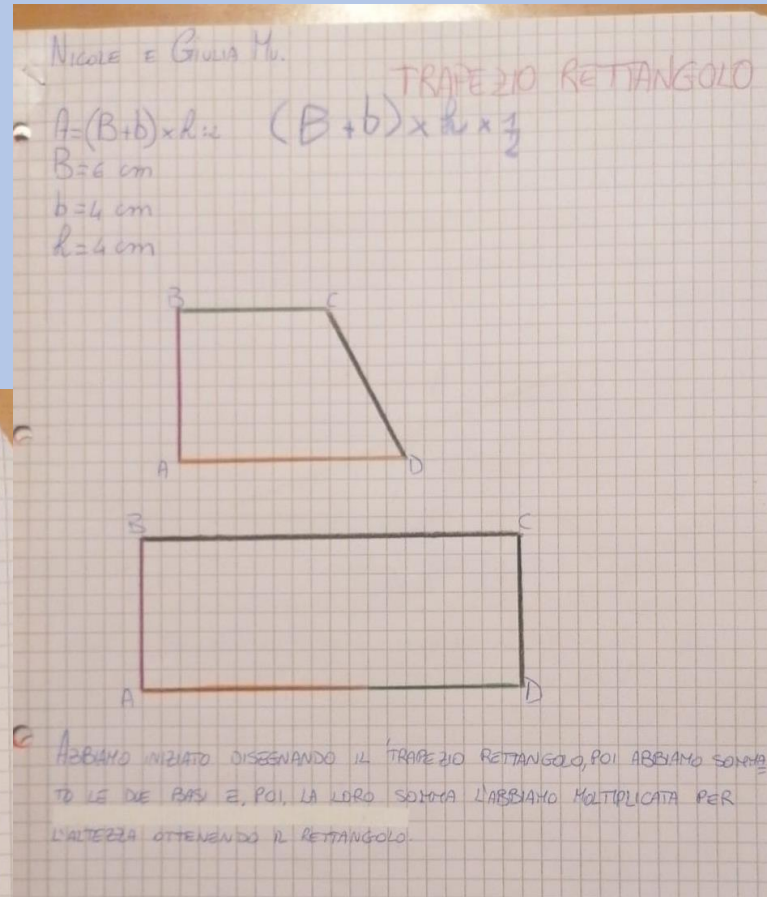 NICOLE E GIULIA MU.
TRAPEZIO RETTANGOLO
A=(B+b)×h:2 (B+b)×h×1/2
B=6 cm
b=4 cm
h=4 cm
B C
A D
B C
A D
ABBIAMO INIZIATO DISEGNANDO IL TRAPEZIO RETTANGOLO, POI ABBIAMO SOMMA
TO LE DUE BASI E, POI, LA LORO SOMMA L'ABBIAMO MOLTIPLICATA PER
L'ALTEZZA OTTENENDO IL RETTANGOLO.